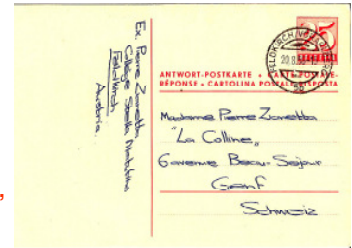 Ex. Pierre Zanetta
Collège Stella Matutina
Feldkirch
Austria.
25
FELDKIRCH
ANTWORT-POSTKARTE + CARTE POSTALE-
RÉPONSE + CARTOLINA POSTALE-RISPOSTA
Madame Pierre Zanetta
"La Colline,"
6 avenue Beau-Séjour
Genf
Schweiz